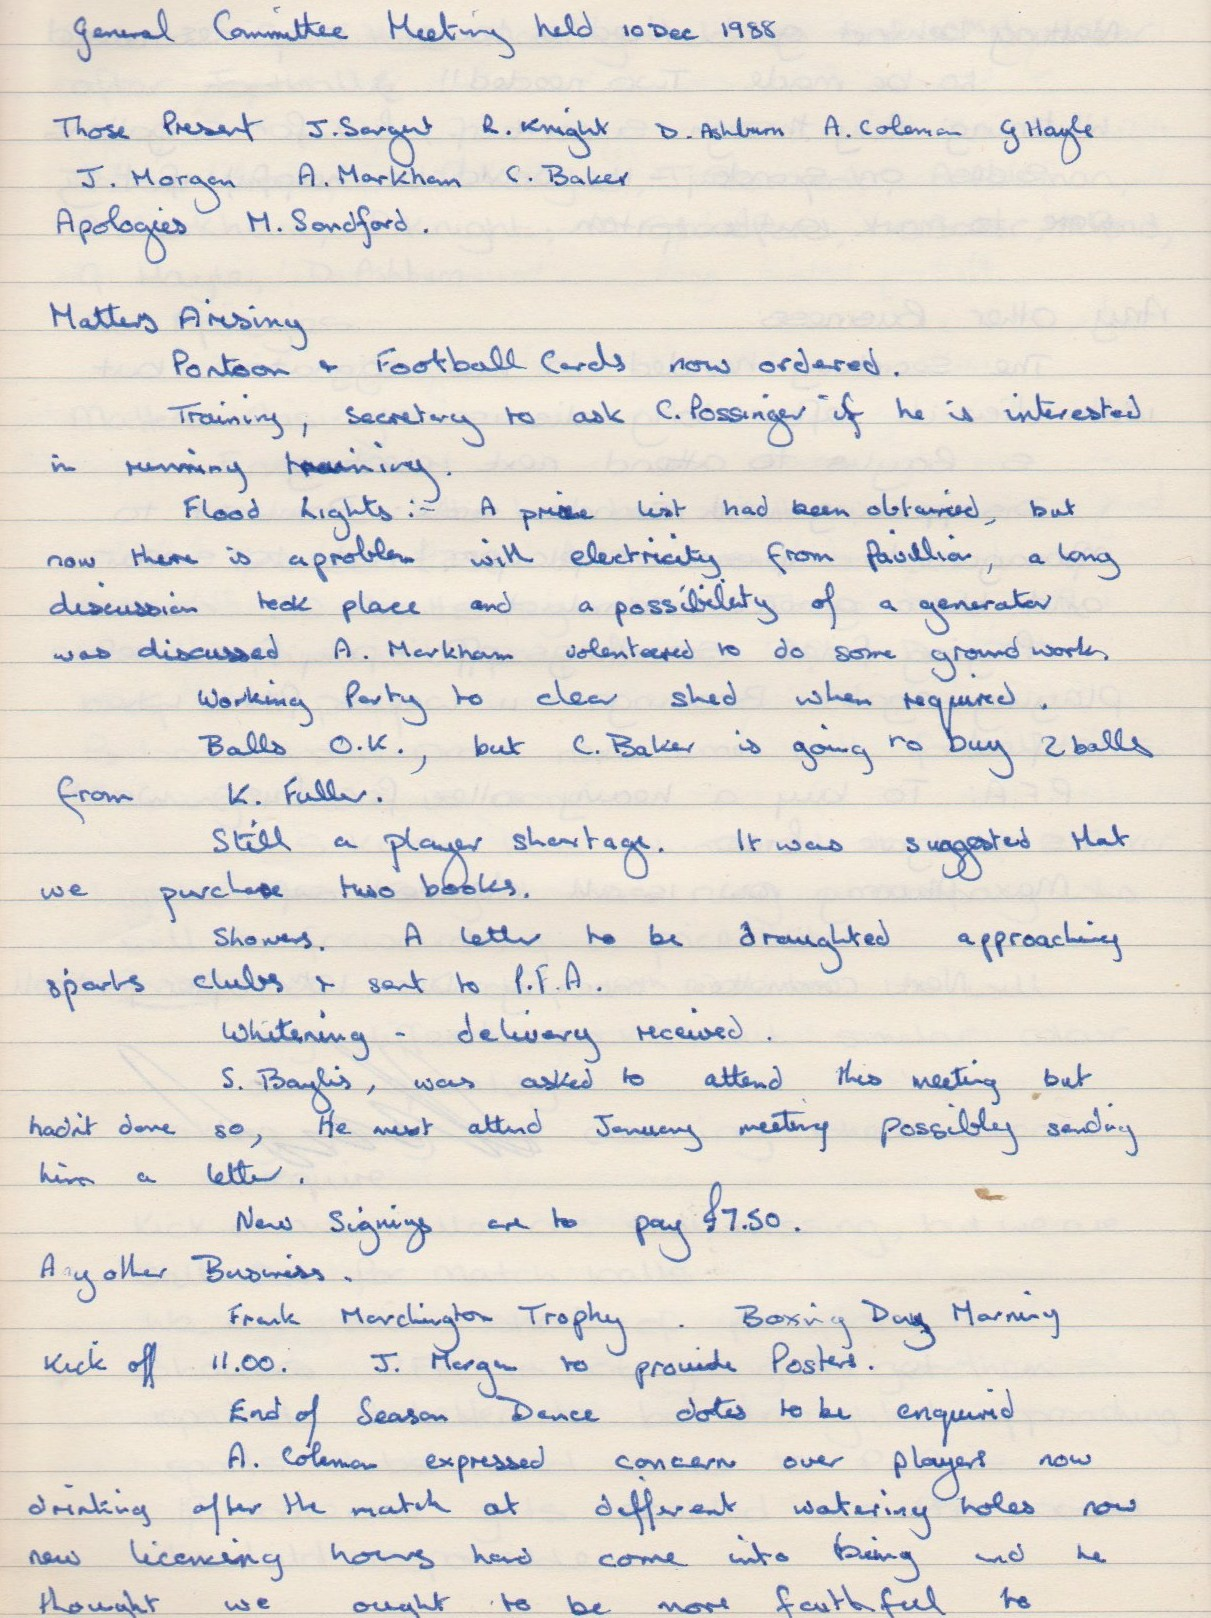 General Committee Meeting held 10 Dec 1988
Those Present J. Sargent R. Knight D. Ashburn A. Coleman G Hayle
J. Morgan A. Markham C. Baker
Apologies M. Sandford.
Matters Arising
Pontoon + Football Cards now ordered.
Training, secretary to ask C. Possinger if he is interested
in running training.
Flood Lights :- A price list had been obtained, but
now there is a problem with electricity from Pavillion, a long
discussion took place and a possibility of a generator
was discussed A. Markham volenteered to do some ground work.
Working Party to clear shed when required.
Balls O.K., but C. Baker is going to buy 2 balls
from K. Fuller.
Still a player shortage. It was suggested that
we purchase two books.
Showers. A letter to be draughted approaching
sports clubs + sent to P.F.A.
Whitening - delivery received.
S. Baylis, was asked to attend this meeting but
hadn't done so, He must attend January meeting possibly sending
him a letter.
New Signings are to pay £7.50.
Any other Business.
Frank Marchington Trophy. Boxing Day Morning
Kick off 11.00. J. Morgan to provide Posters.
End of Season Dance dates to be enquired
A. Coleman expressed concern over players now
drinking after the match at different watering holes now
new licencing hours had come into being and he
thought we ought to be more faithful to